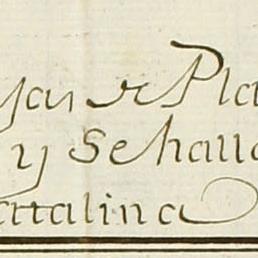 yas de Pla
y Sehalla
attalina